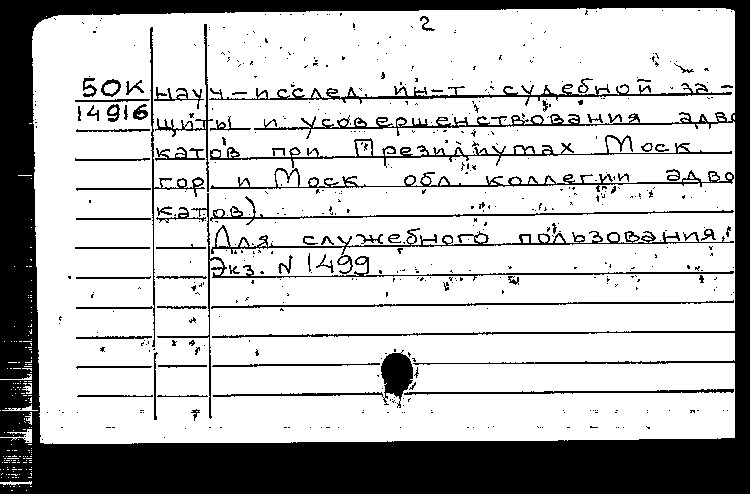 2
50К науч-исслед. ин-т судебной за-
14916 щиты и усовершенствования адво
катов при Президиумах Моск.
гор. и Моск. обл. коллегии адво
катов).
Для служебного пользования.
Экз. N 1499.